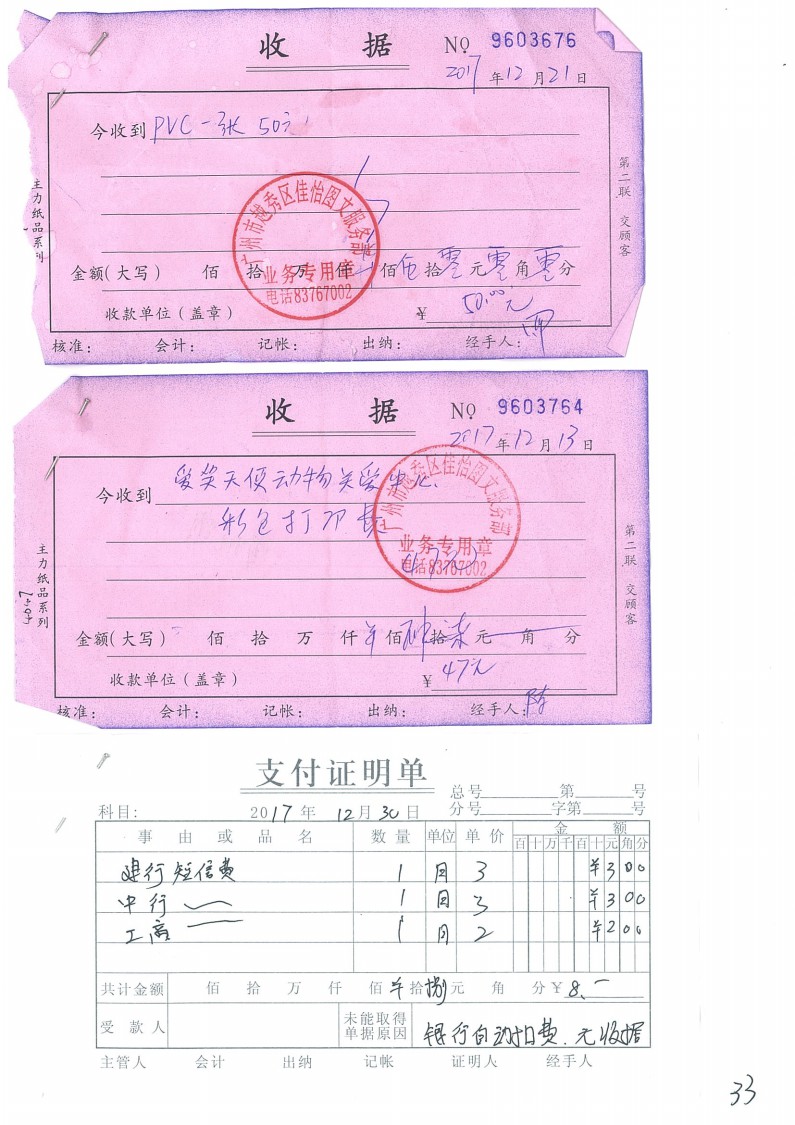 收 据 NO 9603676
2017 年 12 月 21 日
今收到 PVC 一张 50元
广州市越秀区佳怡图文服务部
业务专用章
电话83767002
金额(大写) 佰 拾 万 仟 佰 伍 拾 零 元 零 角 零 分
收款单位(盖章) ¥ 50.00元
核准: 会计: 记帐: 出纳: 经手人:
主力纸品系列
第二联 交顾客
收 据 NO 9603764
2017 年 12 月 13 日
今收到 爱笑天使动物关爱中心
彩色打印
广州市越秀区佳怡图文服务部
业务专用章
电话83767002
金额(大写) 佰 拾 万 仟 ¥ 佰 肆 拾 柒 元 角 分
收款单位(盖章) ¥ 47元
核准: 会计: 记帐: 出纳: 经手人: 陈
主力纸品系列
第二联 交顾客
支付证明单
总号 第 号
科目: 2017 年 12 月 30 日 分号 字第 号
事 由 或 品 名 数 量 单位 单 价 金 额
百 十 万 千 百 十 元 角 分
建行短信费 1 月 3 ¥3 0 0
中行 〃 1 月 3 ¥3 0 0
工商 〃 1 月 2 ¥2 0 0
共计金额 佰 拾 万 仟 佰 ¥ 拾 捌 元 角 分 ¥ 8.-
受 款 人 未能取得单据原因 银行自动扣费.无收据
主管人 会计 出纳 记帐 证明人 经手人
33